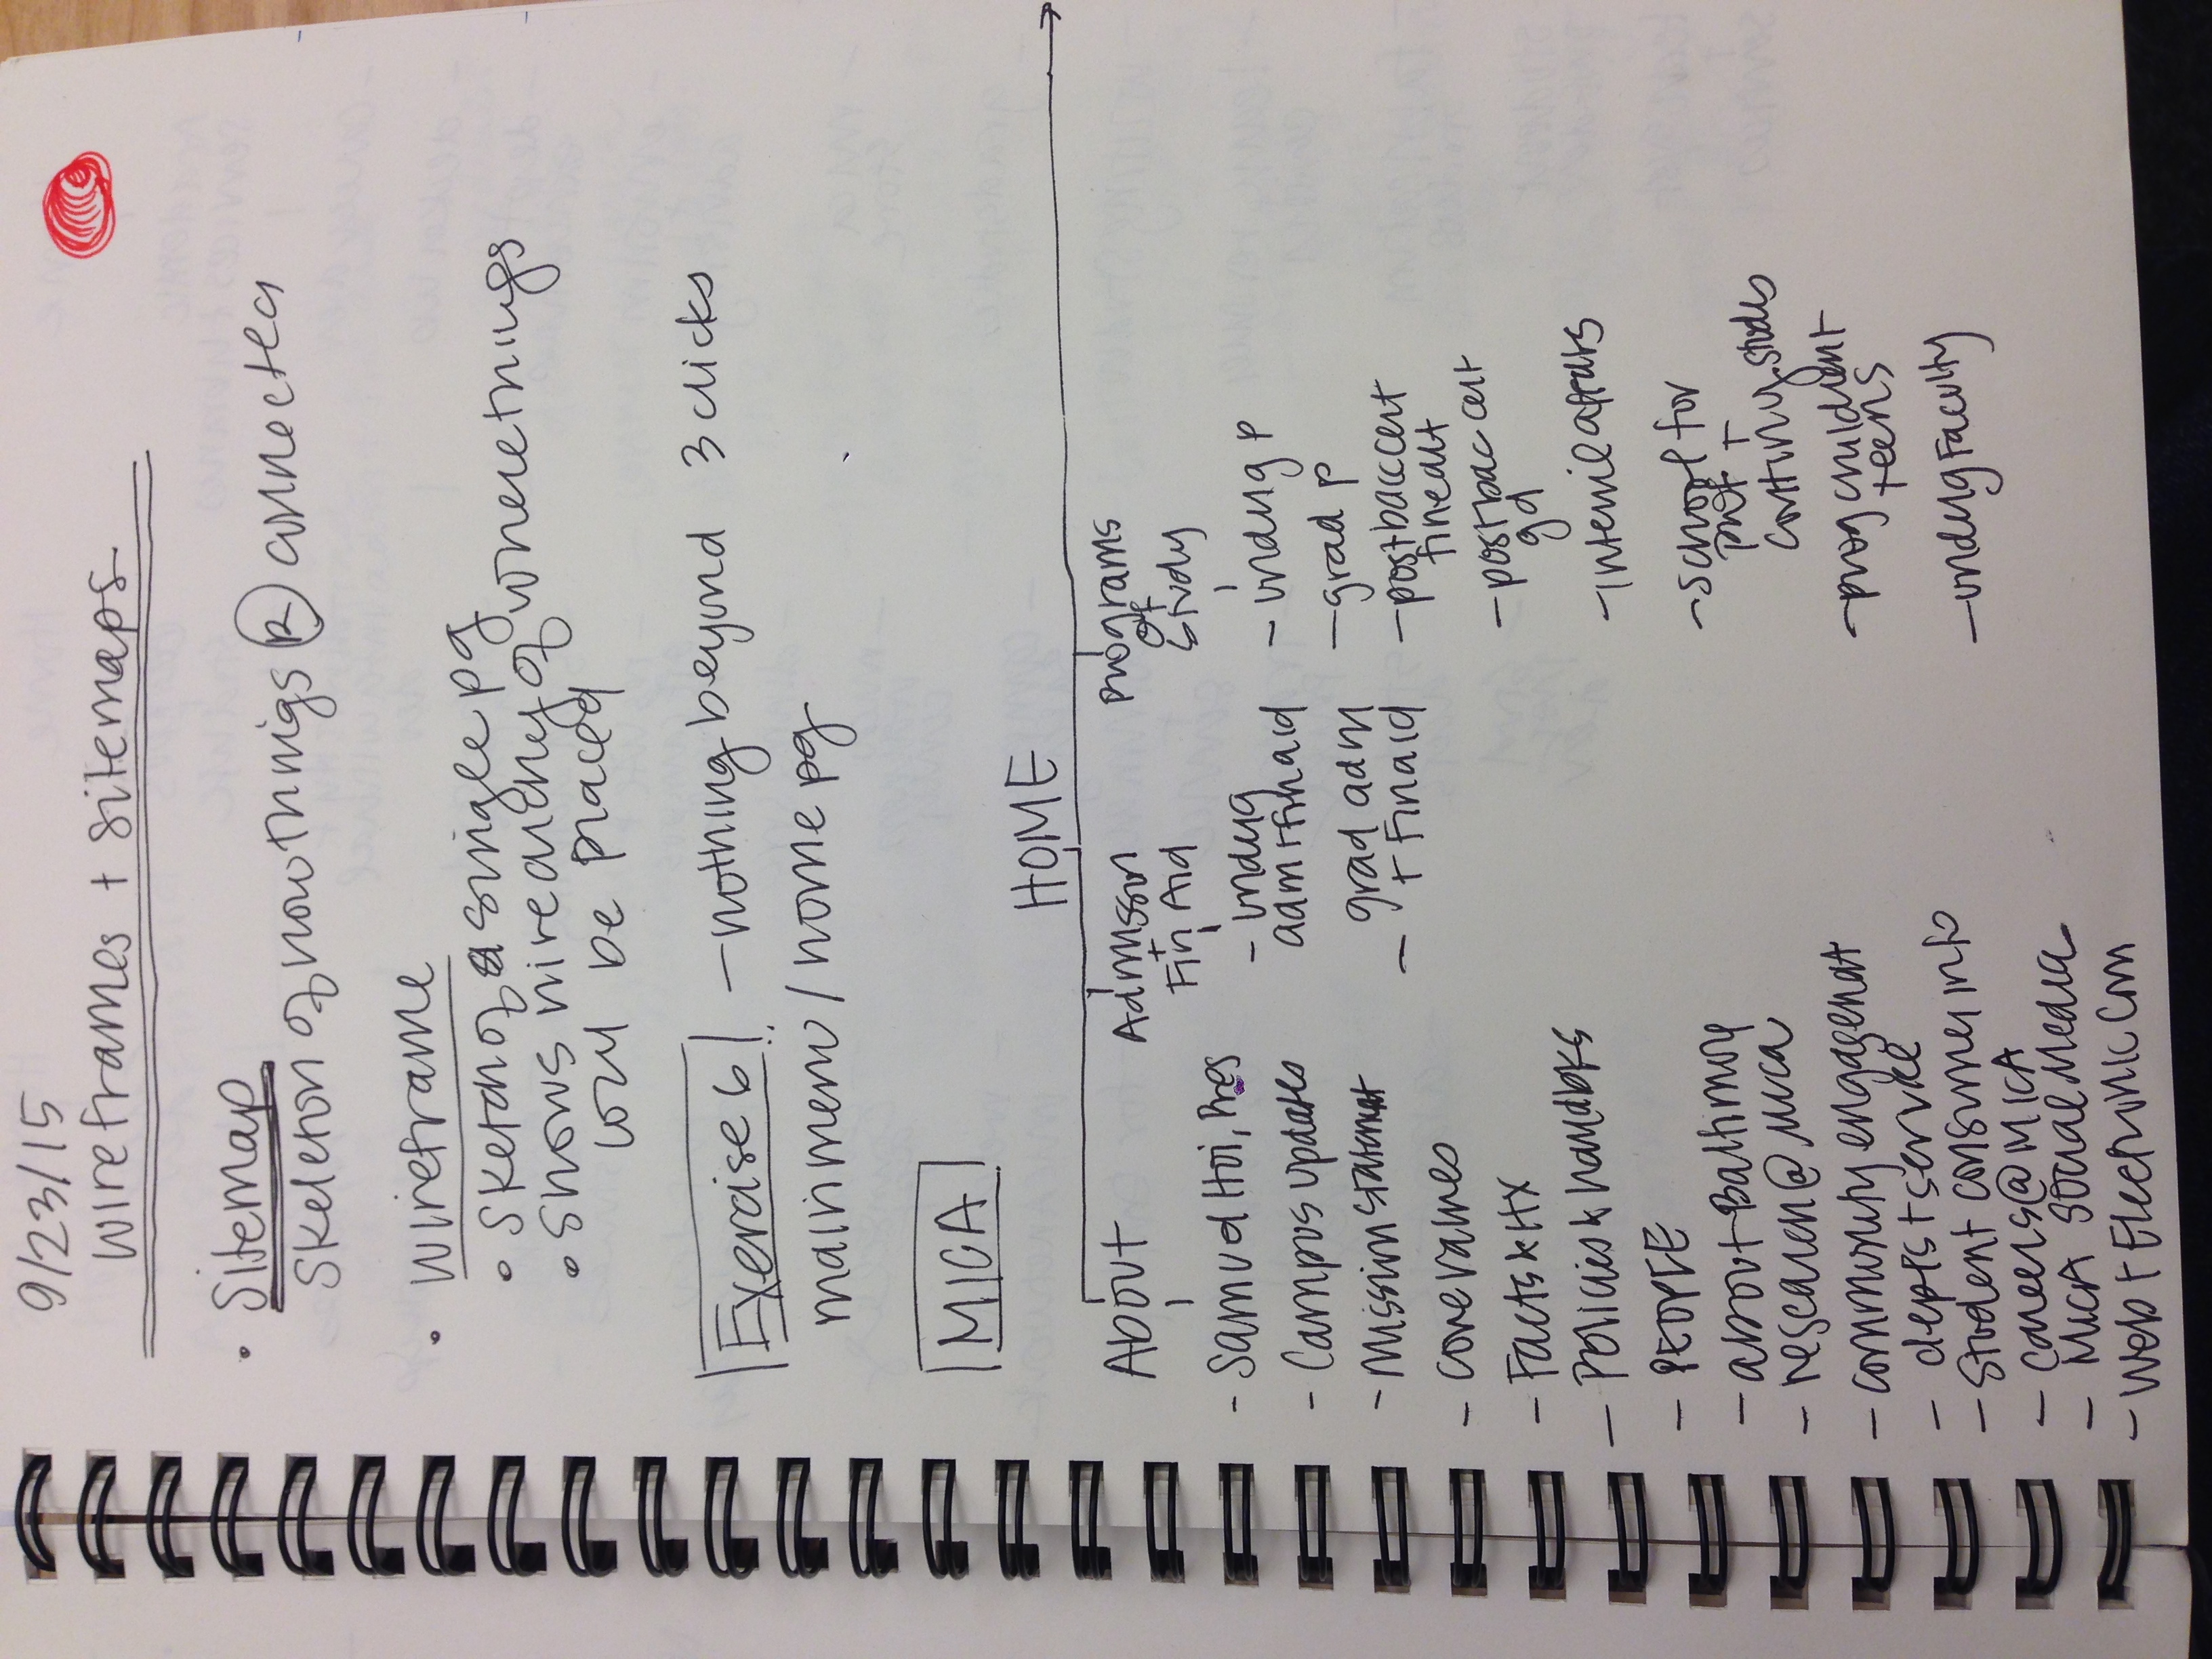 9/23/15
wireframes + sitemaps
• Sitemap
Skeleton of how things R connected
• wireframe
• Sketch of a single pg
• Shows hirearchy of where things
will be placed
Exercise 6! - nothing beyond 3 clicks
main menu / home pg
MICA
HOME
About
- Samuel Hoi, Pres
- Campus updates
- Mission statement
- core values
- Facts & HX
- Policies & handbks
- PEOPLE
- about Baltimore
- research @ Mica
- community engagement
- depts + service
- Student consumer info
- careers @ MICA
- MICA Social Media
- Web + Electronic Com
Admission
+
Fin Aid
- underg
adm + fin aid
grad adm
- + fin aid
Programs
of
Study
- underg p
- grad p
- post bacc cert
fine art
- post bac cert
gd
- affairs
- School for
prof +
studies
- prog children +
teens
- underg Faculty